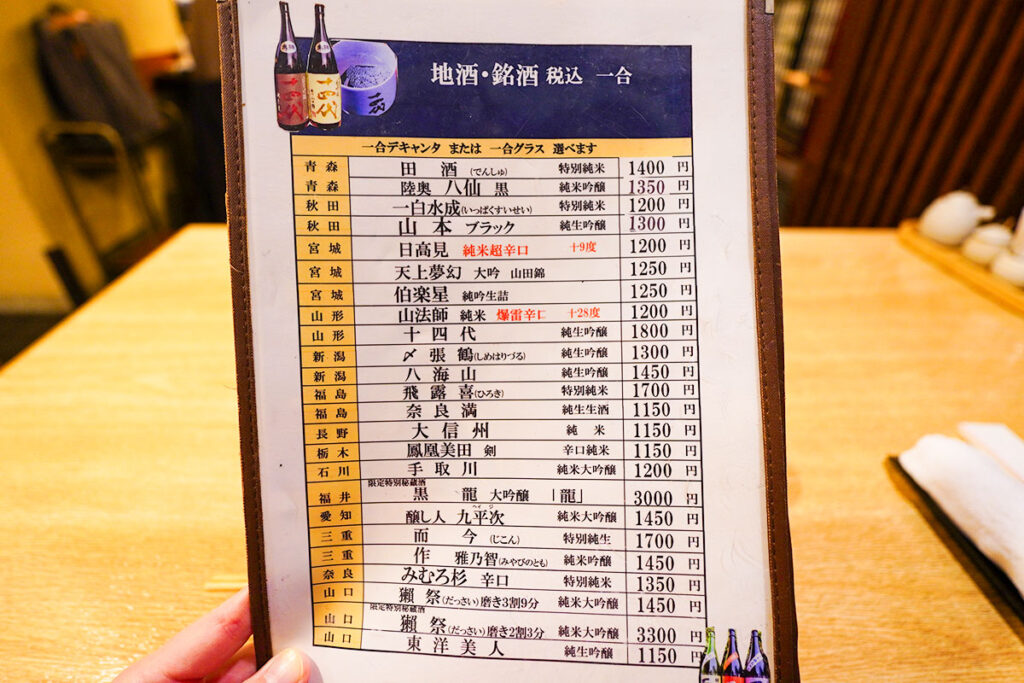 十四代
十四代
地酒・銘酒 税込 一合
一合デキャンタ または 一合グラス 選べます
青森 田酒(でんしゅ) 特別純米 1400円
青森 陸奥 八仙 黒 純米吟醸 1350円
秋田 一白水成(いっぱくすいせい) 特別純米 1200円
秋田 山本 ブラック 純生吟醸 1300円
宮城 日高見 純米超辛口 十9度 1200円
宮城 天上夢幻 大吟 山田錦 1250円
宮城 伯楽星 純吟生詰 1250円
山形 山法師 純米 爆雷辛口 十28度 1200円
山形 十四代 純生吟醸 1800円
新潟 〆張鶴(しめはりづる) 純生吟醸 1300円
新潟 八海山 純生吟醸 1450円
福島 飛露喜(ひろき) 特別純米 1700円
福島 奈良満 純生生酒 1150円
長野 大信州 純米 1150円
栃木 鳳凰美田 剣 辛口純米 1150円
石川 手取川 純米大吟醸 1200円
限定特別秘蔵酒
福井 黒龍 大吟醸 「龍」 3000円
愛知 醸し人 九平次 純米大吟醸 1450円
三重 而今(じこん) 特別純生 1700円
三重 作 雅乃智(みやびのとも) 純米吟醸 1450円
奈良 みむろ杉 辛口 特別純米 1350円
山口 獺祭(だっさい)磨き3割9分 純米大吟醸 1450円
限定特別秘蔵酒
山口 獺祭(だっさい)磨き2割3分 純米大吟醸 3300円
山口 東洋美人 純生吟醸 1150円